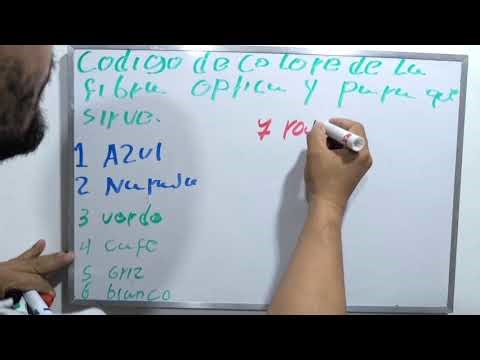 Codigo de colore de la
fibra optica y para que
sirve.
1 Azul
2 Naranja
3 verde
4 cafe
5 Griz
6 blanco
7 ro